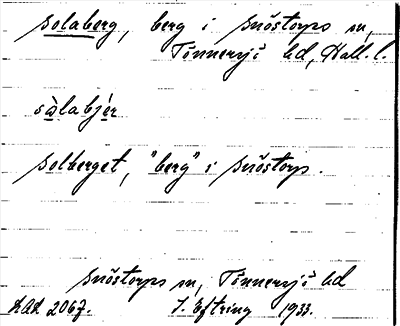 solaberg, berg i Snöstorps sn,
Tönnersjö hd, Hall. l.
sòlabjer
solberget, "berg" i Snöstorp.
Snöstorps sn, Tönnersjö hd
KAK 2067. J. Eftring 1933.